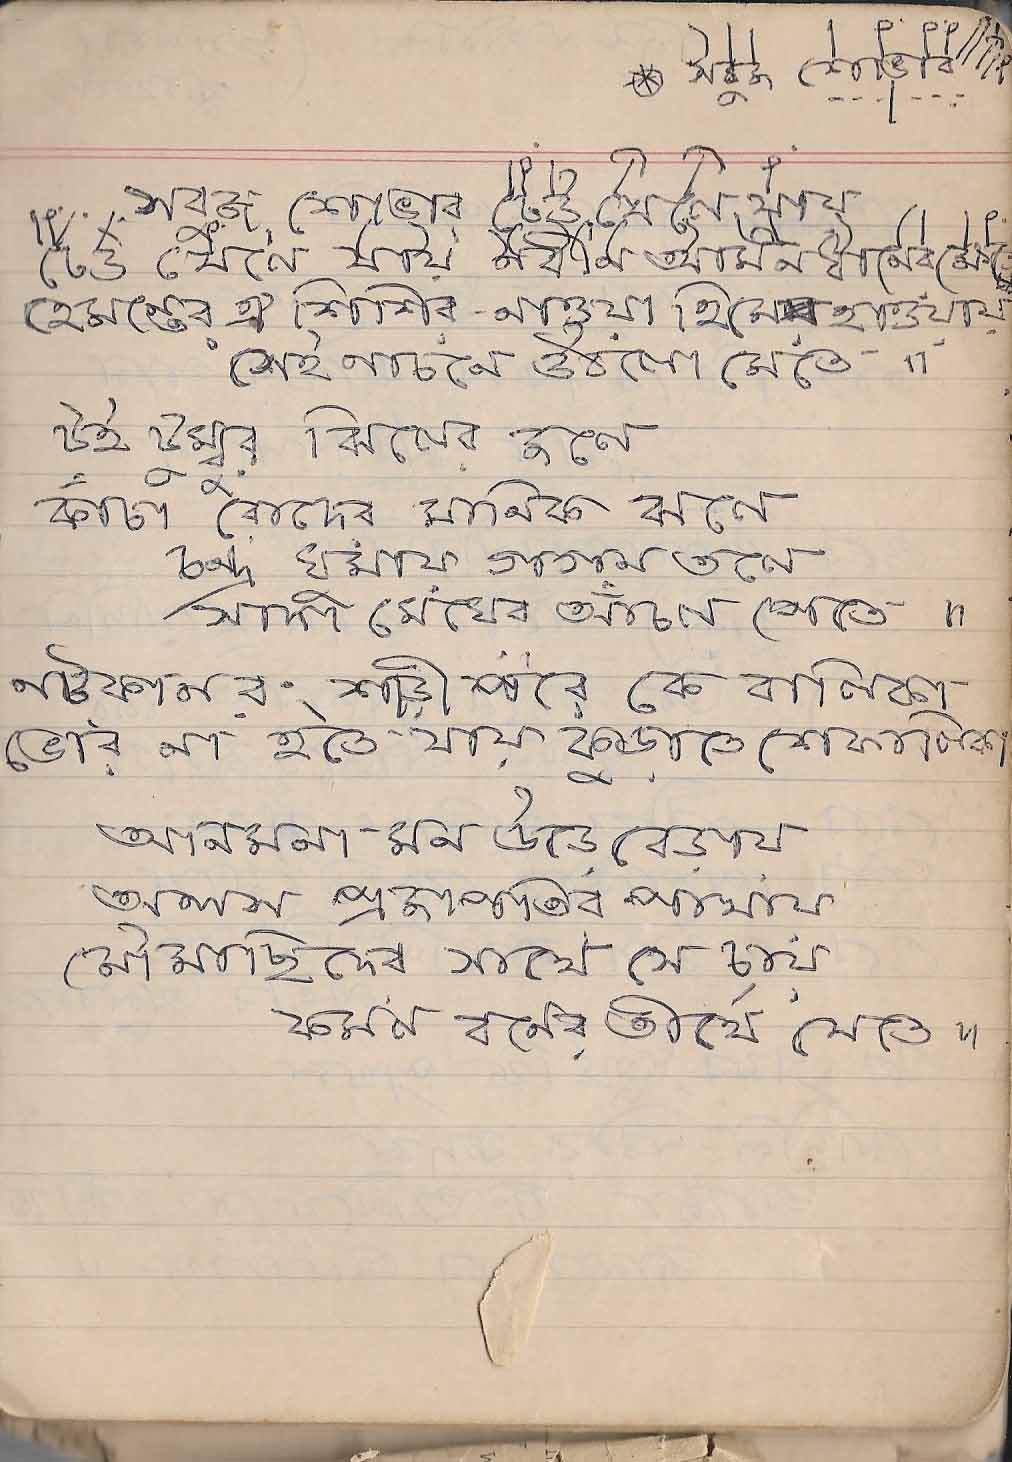 সবুজ শোভার
সবুজ শোভার ঢেউ খেলে যায়
ঢেউ খেলে যায় নবীন আমন ধানের ক্ষেতে
হেমন্তের ঐ শিশির নাওয়া হিমেল হাওয়ায়
সেই নাচনে উঠলো মেতে ॥
টইটুম্বুর ঝিলের জলে
কাঁচা রোদের মানিক ঝলে
চন্দ্র ঘুমায় গগন তলে
সাদা মেঘের আঁচল পেতে ॥
নটকান রং শাড়ী পরে কে বালিকা
ভোর না হতে যায় কুড়াতে শেফালিকা
আনমনা মন উড়ে বেড়ায়
অলস প্রজাপতির পাখায়
মৌমাছিদের সাথে সে চায়
কমল বনের তীর্থে যেতে ॥